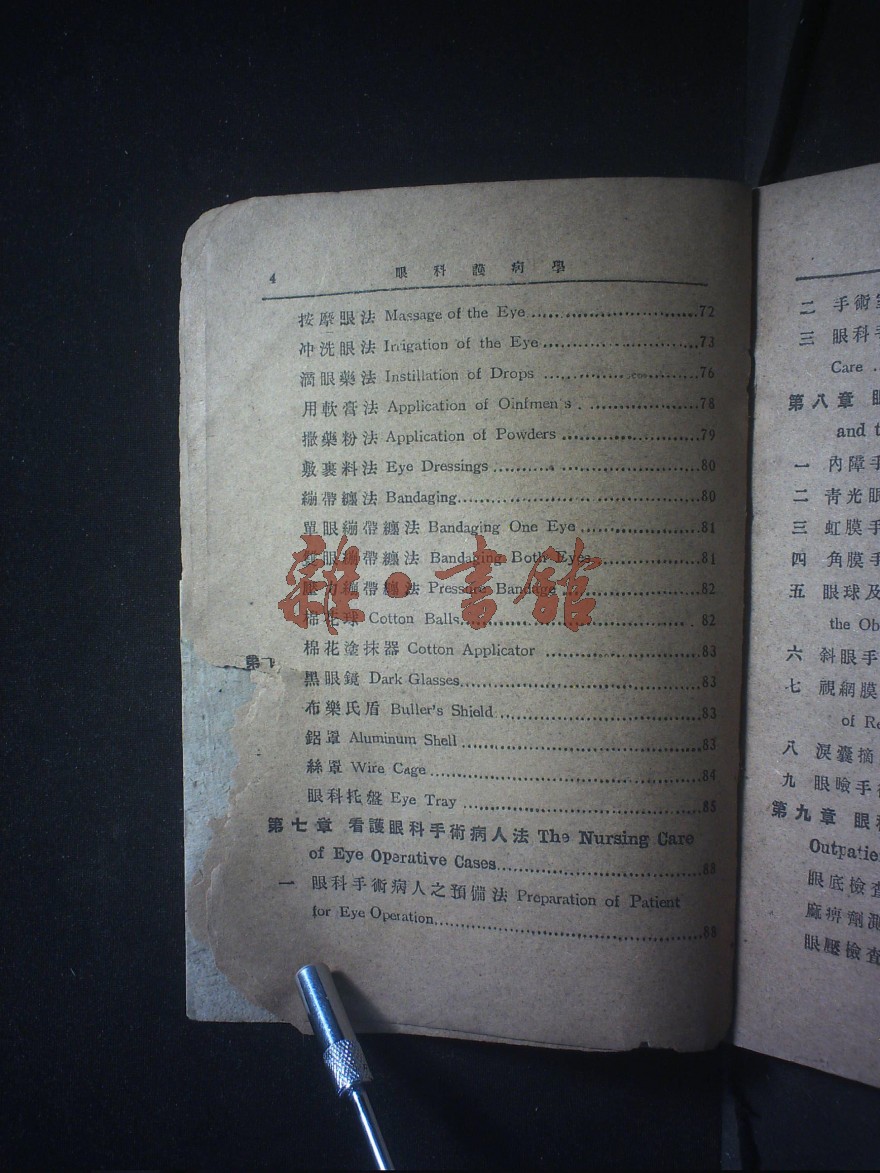 4 眼科護病學
按摩眼法 Massage of the Eye 72
冲洗眼法 Irrigation of the Eye 73
滴眼藥法 Instillation of Drops 76
用軟膏法 Application of Ointments 78
撒藥粉法 Application of Powders 79
敷裹料法 Eye Dressings 80
繃帶纏法 Bandaging 80
單眼繃帶纏法 Bandaging One Eye 81
雙眼繃帶纏法 Bandaging Both Eyes 81
壓力繃帶纏法 Pressure Bandage 82
棉花球 Cotton Balls 82
棉花塗抹器 Cotton Applicator 83
黑眼鏡 Dark Glasses 83
布樂氏盾 Buller's Shield 83
鋁罩 Aluminum Shell 83
絲罩 Wire Cage 84
眼科托盤 Eye Tray 85
第七章 看護眼科手術病人法 The Nursing Care
of Eye Operative Cases 88
一 眼科手術病人之預備法 Preparation of Patient
for Eye Operation 88
第
雜·書館
二 手術
三 眼科
Care
第八章
and
一 內障手
二 青光眼
三 虹膜手
四 角膜手
五 眼球及
the
六 斜眼手
七 視網膜
of
八 淚囊摘
九 眼瞼手
第九章 眼
眼底檢查
麻痹劑
眼壓檢查